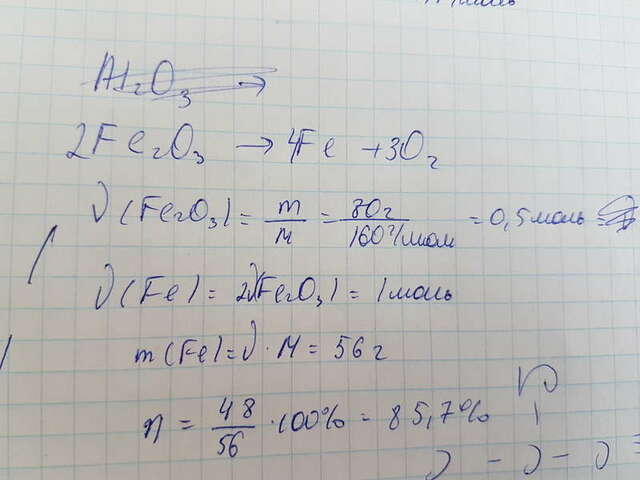 2Fe₂O₃ → 4Fe + 3O₂
ν(Fe₂O₃) = m/M = 80г/160г/моль = 0,5моль =
ν(Fe) = 2ν(Fe₂O₃) = 1моль
m(Fe) = ν · M = 56г
η = 48/56 · 100% = 85,7%